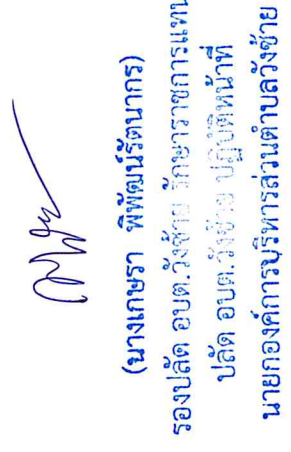 (นางเกษรา พิพัฒน์รัตนากร)
รองปลัด อบต.วังซ้าย รักษาราชการแทน
ปลัด อบต.วังซ้าย ปฏิบัติหน้าที่
นายกองค์การบริหารส่วนตำบลวังซ้าย